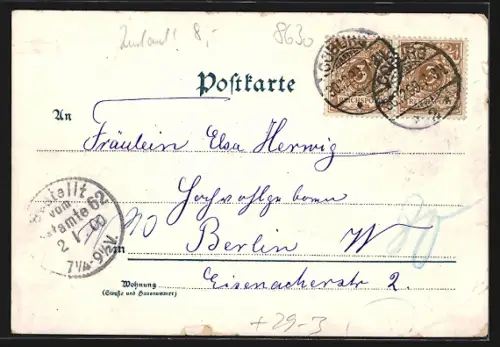 8,-
8630
COBURG
Postkarte
An
Fräulein Elsa Herwig
Hochwohlgeboren
Bestellt
vom
Postamte 62
2 1 00
7¼-9½V.
in
Berlin W
Eisenacherstr 2.
Wohnung
(Straße und Hausnummer)
+29-3